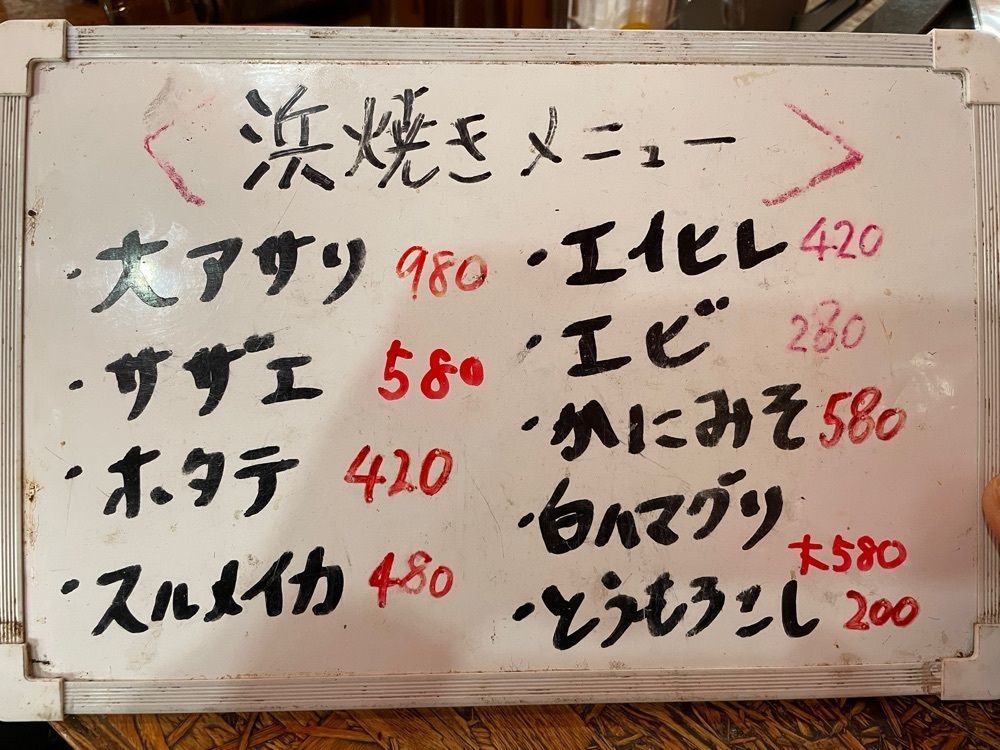 〈浜焼きメニュー〉
・大アサリ 980
・サザエ 580
・ホタテ 420
・スルメイカ 480
・エイヒレ 420
・エビ 280
・かにみそ 580
・白ハマグリ
大580
・とうもろこし 200